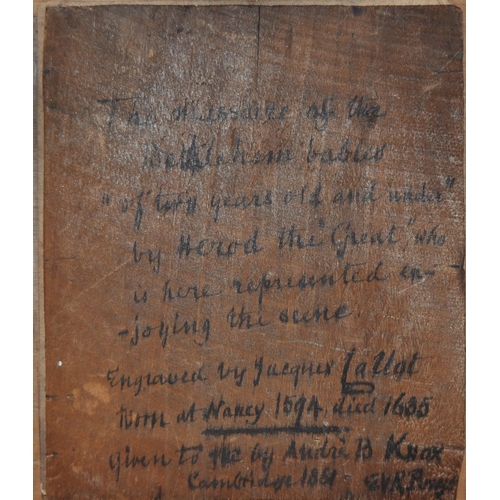 The Massacre of the
Bethlehem babies
"of two years old and under"
by Herod the "Great" who
is here represented en-
-joying the scene.
Engraved by Jacques Callot
born at Nancy 1594, died 1635
given to me by André B Knox
Cambridge 1881